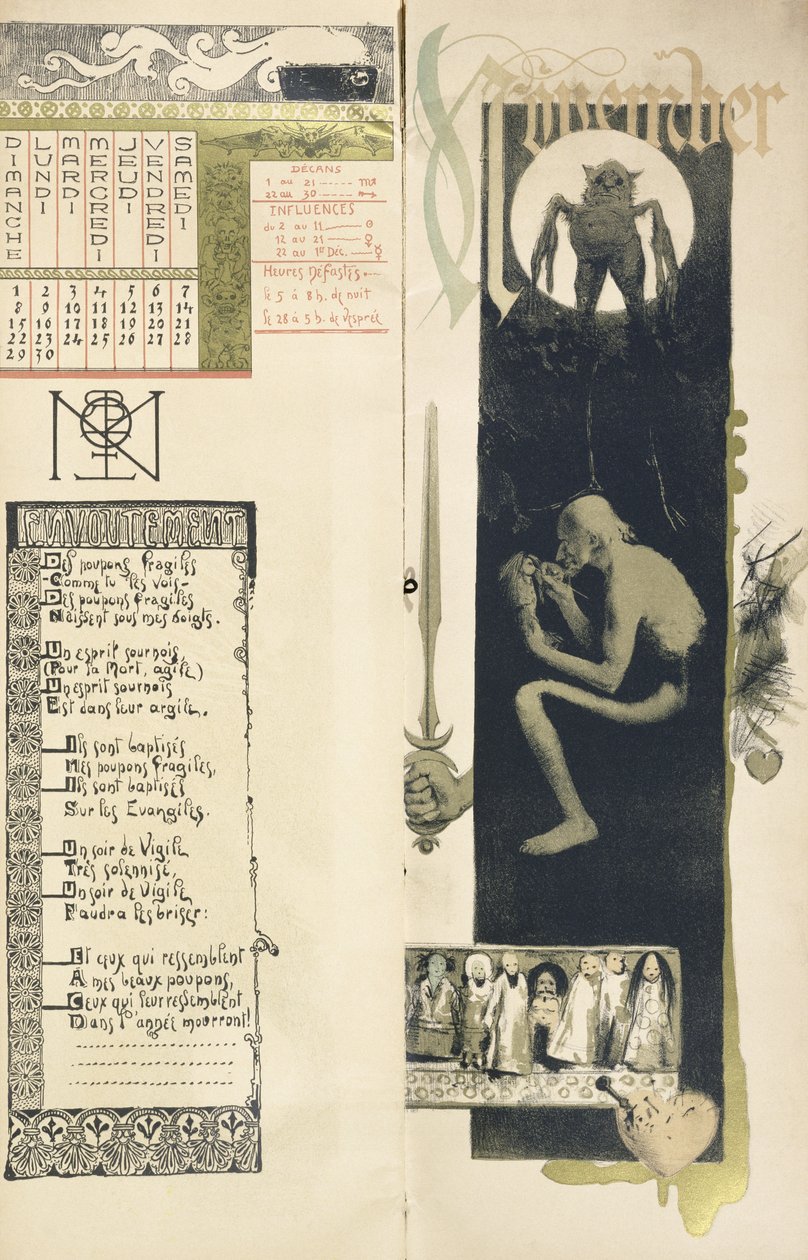 November
DIMANCHE LUNDI MARDI MERCREDI JEUDI VENDREDI SAMEDI
1 2 3 4 5 6 7
8 9 10 11 12 13 14
15 16 17 18 19 20 21
22 23 24 25 26 27 28
29 30
DÉCANS
1 au 21 ------ ♏
22 au 30 ---- ♐
INFLUENCES
du 2 au 11 ☉
12 au 21 ♀
22 au 1er Déc. ☿
Heures Néfastes.
le 5 á 8 h. de nuit
le 28 á 5 h. de Vesprée
ENVOUTEMENT
Des poupons fragiles
-Comme tu les vois-
Des poupons fragiles
Naissent sous mes doigts.
Un esprit sournois,
(Pour la Mort, agile)
Un esprit sournois
Est dans leur argile.
Ils sont baptisés
Mes poupons fragiles,
Ils sont baptisés
Sur les Evangiles.
Un soir de Vigile
Très solennisé,
Un soir de Vigile
Faudra les briser:
Et ceux qui ressemblent
À mes beaux poupons,
Ceux qui leur ressemblent
Dans l'année mourront!